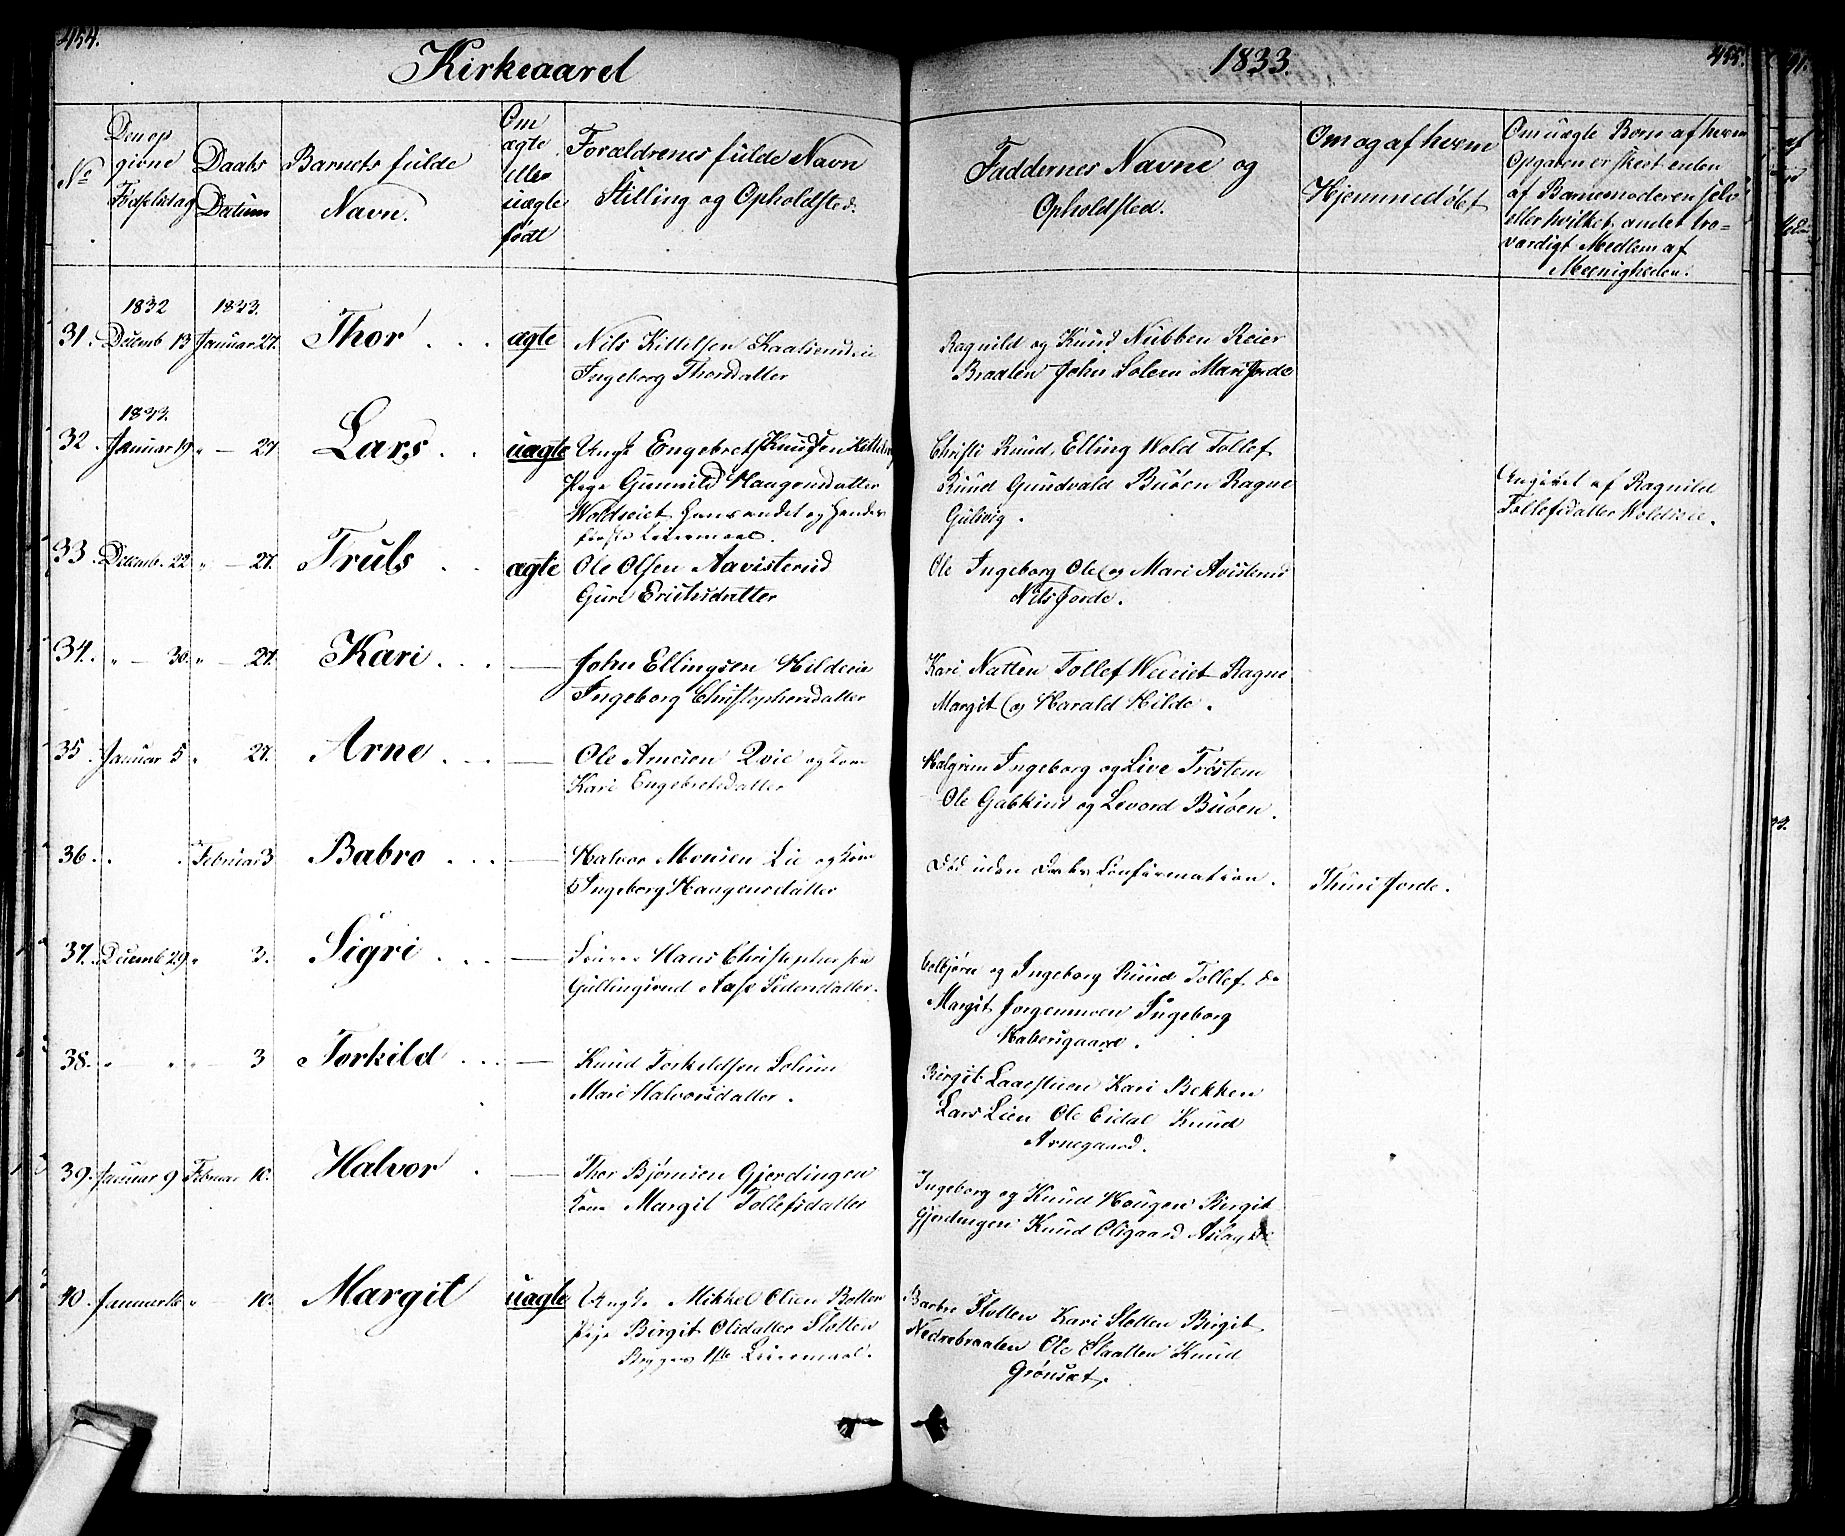 454.
Kirkeaaret
1833.
455.
No
Den op
givne
Fødselsdag
Daabs
Datum
Barnets fulde
Navn.
Om
ægte
eller
uægte
født
Forældrenes fulde Navn
Stilling og Opholdsted.
Faddernes Navne og
Opholdsted.
Om og af hvem
Hjemmedøbt
Om uægte Børn af hvem
Opgaven er skeet enten
af Barnemoderen selv
eller hvilket andet tro=
værdigt Medlem af
Meenigheden.
1832 1833.
31. Decemb 13 Januar 27. Thor ægte Nils Kittelsen
Ingeborg Thorsdatter
Ragnild og Knud Nubben Reier
Braalen John Solem Mari Jorde
1833.
32. Januar 19 " — 27 Lars uægte Ungk Engebret Knudsen
Pige Gunnild Haagensdatter
Woldseiet Hans andet og Hendes
første Leiermaal.
Christi Ruud, Elling Wold Tollef
Ruud Gundvald Buøen Ragne
Gulsvig.
Angivet af Ragnild
Tollefsdatter Woldseie.
33. Decemb. 22 " — 27. Truls ægte Ole Olsen Aavisterud
Guri Erichsdatter
Ole Ingeborg Ole og Mari Avisterud
Nils Jorde.
34. " — 30. " — 27. Kari — John Ellingsen Hildeeie
Ingeborg Christophersdatter
Kari Natten Tollef Ragne
Margit og Harald Hilde.
35. Januar 5 " 27. Arne — Ole Arnesen Qvie og Kone
Kari Engebretsdatter
Halgrim Ingeborg og Live Trøstem
Ole Gabkind og Levord Buøen.
36. Februar 3 Babro — Halvor Monsen Lie og Kone
Ingeborg Haagensdatter
Død uden Daabs Confirmation.
Thuri Jorde.
37. Decemb 29 " 3. Sigri — Hans Christophersen
Gullingsrud Aase
og Ingeborg Ruud Tollef do
Margit Jorgenmoen Ingeborg
Habersgaard.
38. " " " 3 Torkild — Knud Torkildsen Solum
Mari Halvorsdatter.
Birgit Laaestuen Kari Bekken
Lars Lien Ole Eidal Knud
Arnegaard.
39. Januar 9 Februar 10. Halvor — Thor Bjørnsen Gjerdingen
Kone Margit Tollefsdatter
Ingeborg og Knud Haugen Birgit
Gjerdingen Knud Olsgaard Aslag do
40. Januar " 10. Margit uægte Ungk. Mikkel Olsen Botten
Pige Birgit Olsdatter Slotten
Begges 1ste Leiermaal.
Barbro Slotten Kari Slotten Birgit
Nedrebraalen Ole Slaatten Knud
Grønsæt.